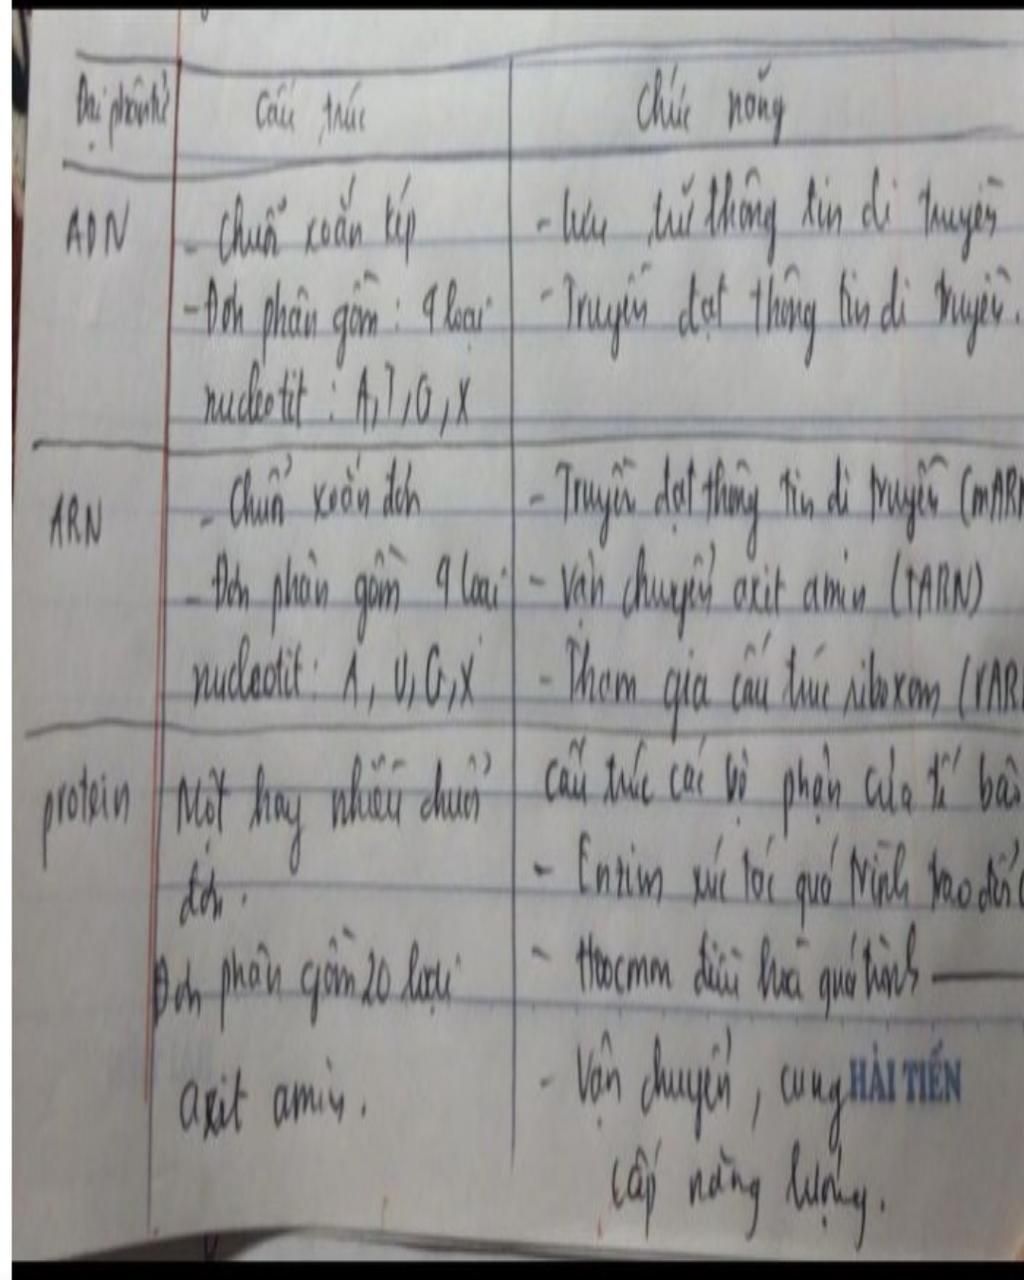 Đại phân tử
Cấu trúc
Chức năng
ADN
- Chuỗi xoắn kép
- Đơn phân gồm: 4 loại
nucleotit: A, T, G, X
- Lưu trữ thông tin di truyền
- Truyền đạt thông tin di truyền.
ARN
- Chuỗi xoắn đơn
- Đơn phân gồm 4 loại
nucleotit: A, U, G, X
- Truyền đạt thông tin di truyền (mAR
- Vận chuyển axit amin (tARN)
- Tham gia cấu trúc riboxom (rAR
protein
Một hay nhiều chuỗi
đơn.
Đơn phân gồm 20 loại
axit amin.
Cấu trúc các bộ phận của tế bào
- Enzim xúc tác quá trình trao đổi
- Hoocmon điều hoà quá trình —
- Vận chuyển, cung
cấp năng lượng.
HẢI TIẾN